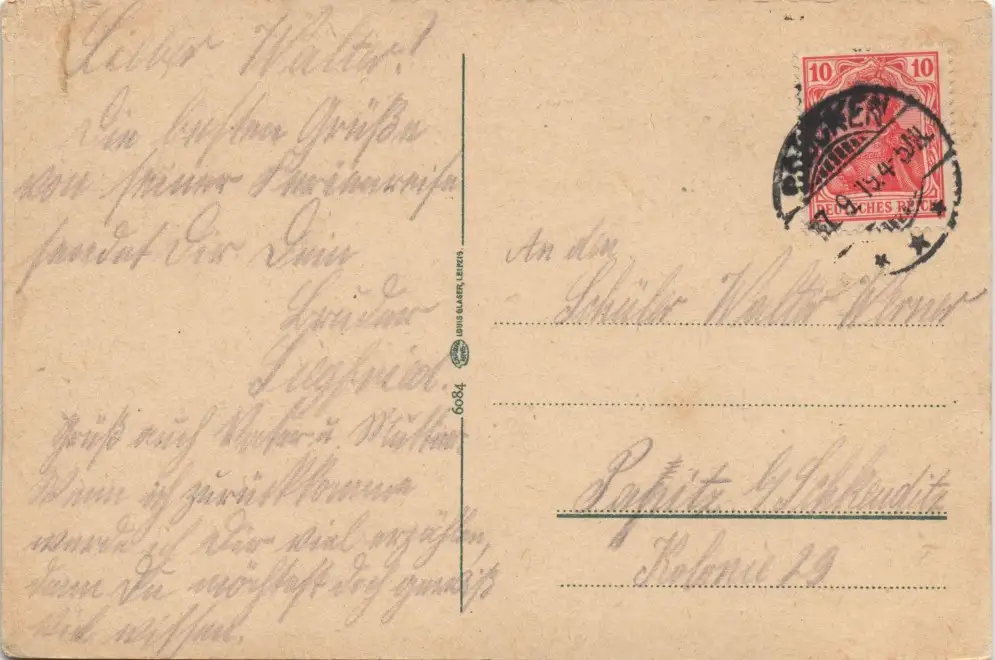 Lieber Walter!
Die besten Grüße
von seiner Ferienreise
sendet Dir Dein
Bruder
Siegfried.
Grüß auch Vater u. Mutter.
Wenn ich zurückkomme
werde ich Dir viel erzählen,
denn Du möchtest doch gewiß
viel wissen.
6084 LOUIS GLASER, LEIPZIG
10 10
DEUTSCHES REICH
17.9.19.4-5N.
An den
Schüler Walter Werner
Papitz b/ Schkeuditz
Kolonie 29